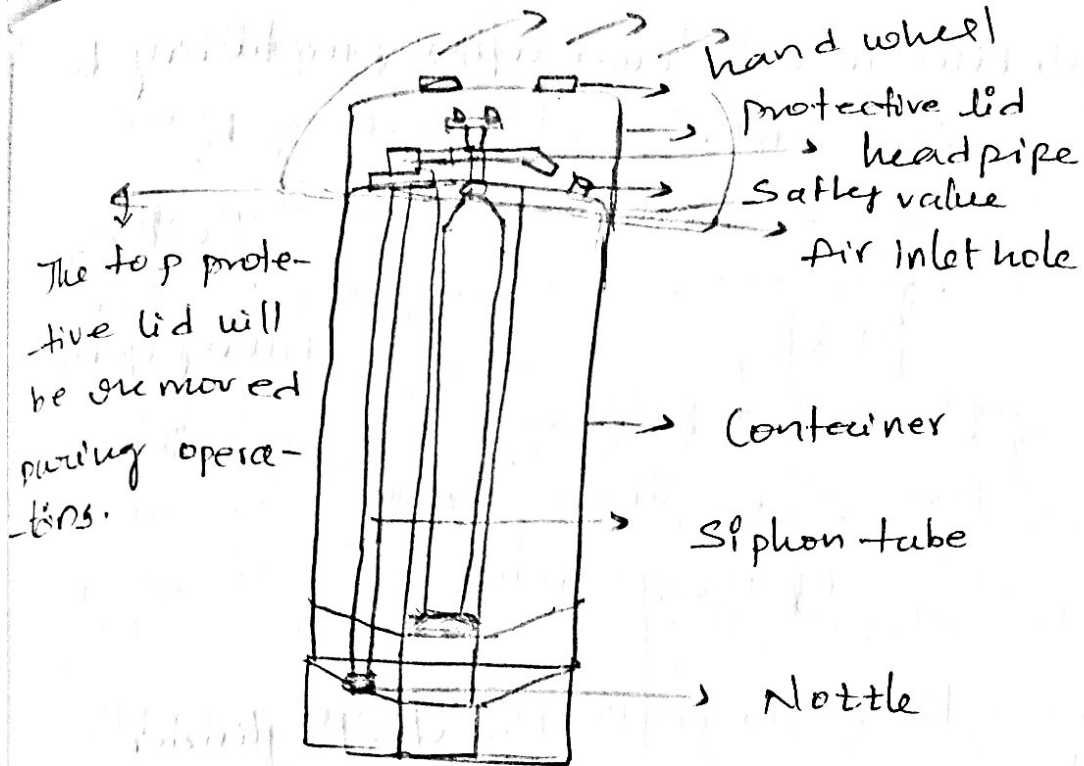 hand wheel
protective lid
headpipe
Saftey value
Air inlet hole
The top prote-
-tive lid will
be removed
during opera-
-tins.
Container
Siphon tube
Nottle